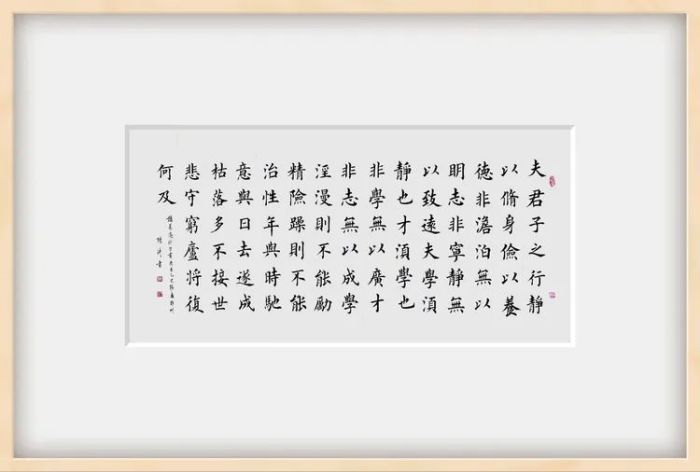 夫君子之行靜
以脩身儉以養
徳非澹泊無以
明志非寧靜無
以致遠夫學須
靜也才須學也
非學無以廣才
非志無以成學
淫漫則不能勵
精險躁則不能
治性年與時馳
意與日去遂成
枯落多不接世
悲守窮廬將復
何及